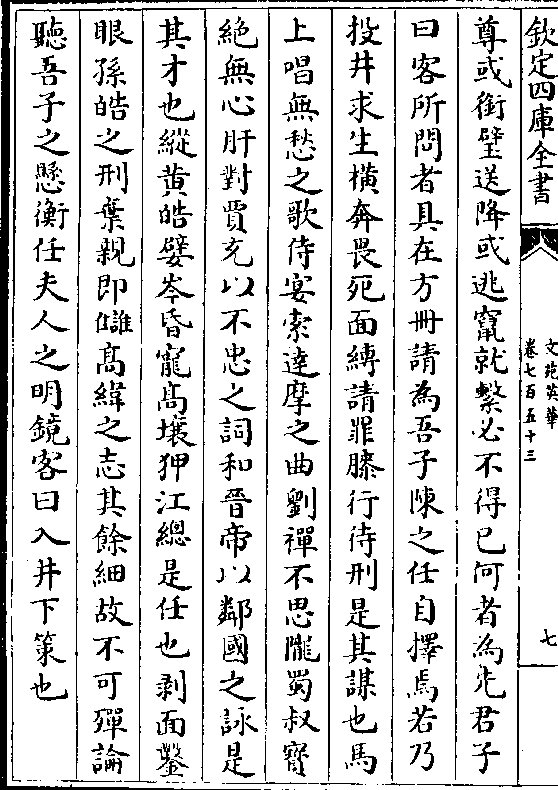 欽定四庫全書
文苑英華
卷七百五十三
七
尊或銜璧送降或逃竄就繫必不得已何者為先君子
曰客所問者具在方冊請為吾子陳之任自擇焉若乃
投井求生橫奔畏死面縛請罪膝行待刑是其謀也馬
上唱無愁之歌侍宴索達摩之曲劉禪不思隴蜀叔寳
絶無心肝對賈充以不忠之詞和晉帝以鄰國之詠是
其才也縱黄皓嬖岑昏寵髙壤狎江總是任也剥面鑿
眼孫皓之刑棄親即讎髙緯之志其餘細故不可殫論
聽吾子之懸衡任夫人之明鏡客曰入井下策也